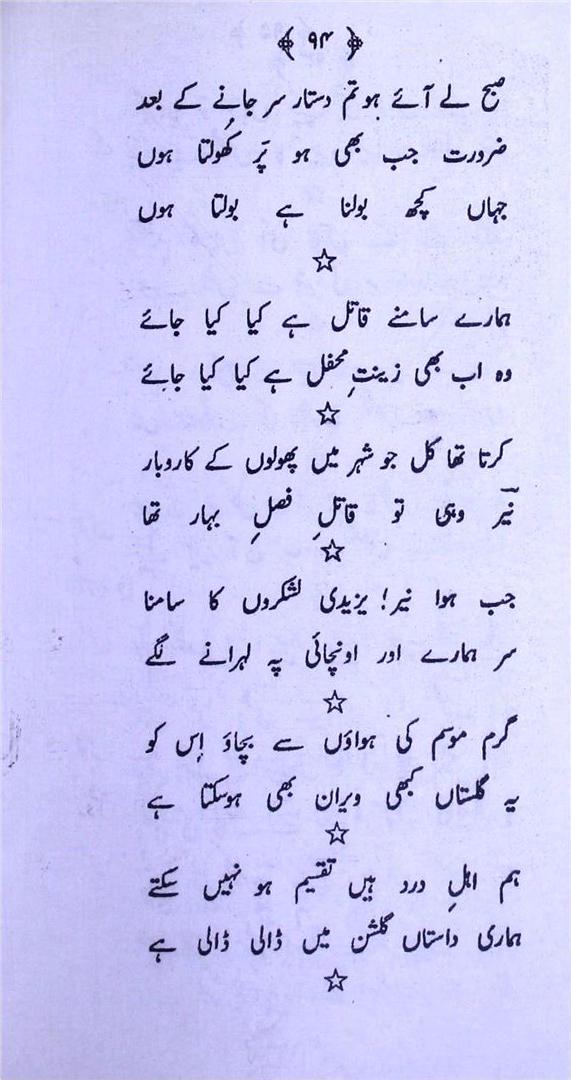 ﴿۹۴﴾
صبح لے آئے ہو تم دستار سر جانے کے بعد
ضرورت جب بھی ہو پَر کھولتا ہوں
جہاں کچھ بولنا ہے بولتا ہوں
☆
ہمارے سامنے قاتل ہے کیا کیا جائے
وہ اب بھی زینتِ محفل ہے کیا کیا جائے
☆
کرتا تھا کل جو شہر میں پھولوں کے کاروبار
نیرؔ وہی تو قاتلِ فصلِ بہار تھا
☆
جب ہوا نیر! یزیدی لشکروں کا سامنا
سر ہمارے اور اونچائی پہ لہرانے لگے
☆
گرم موسم کی ہواؤں سے بچاؤ اِس کو
یہ گلستاں کبھی ویران بھی ہوسکتا ہے
☆
ہم اہلِ درد ہیں تقسیم ہو نہیں سکتے
ہماری داستاں گلشن میں ڈالی ڈالی ہے
☆